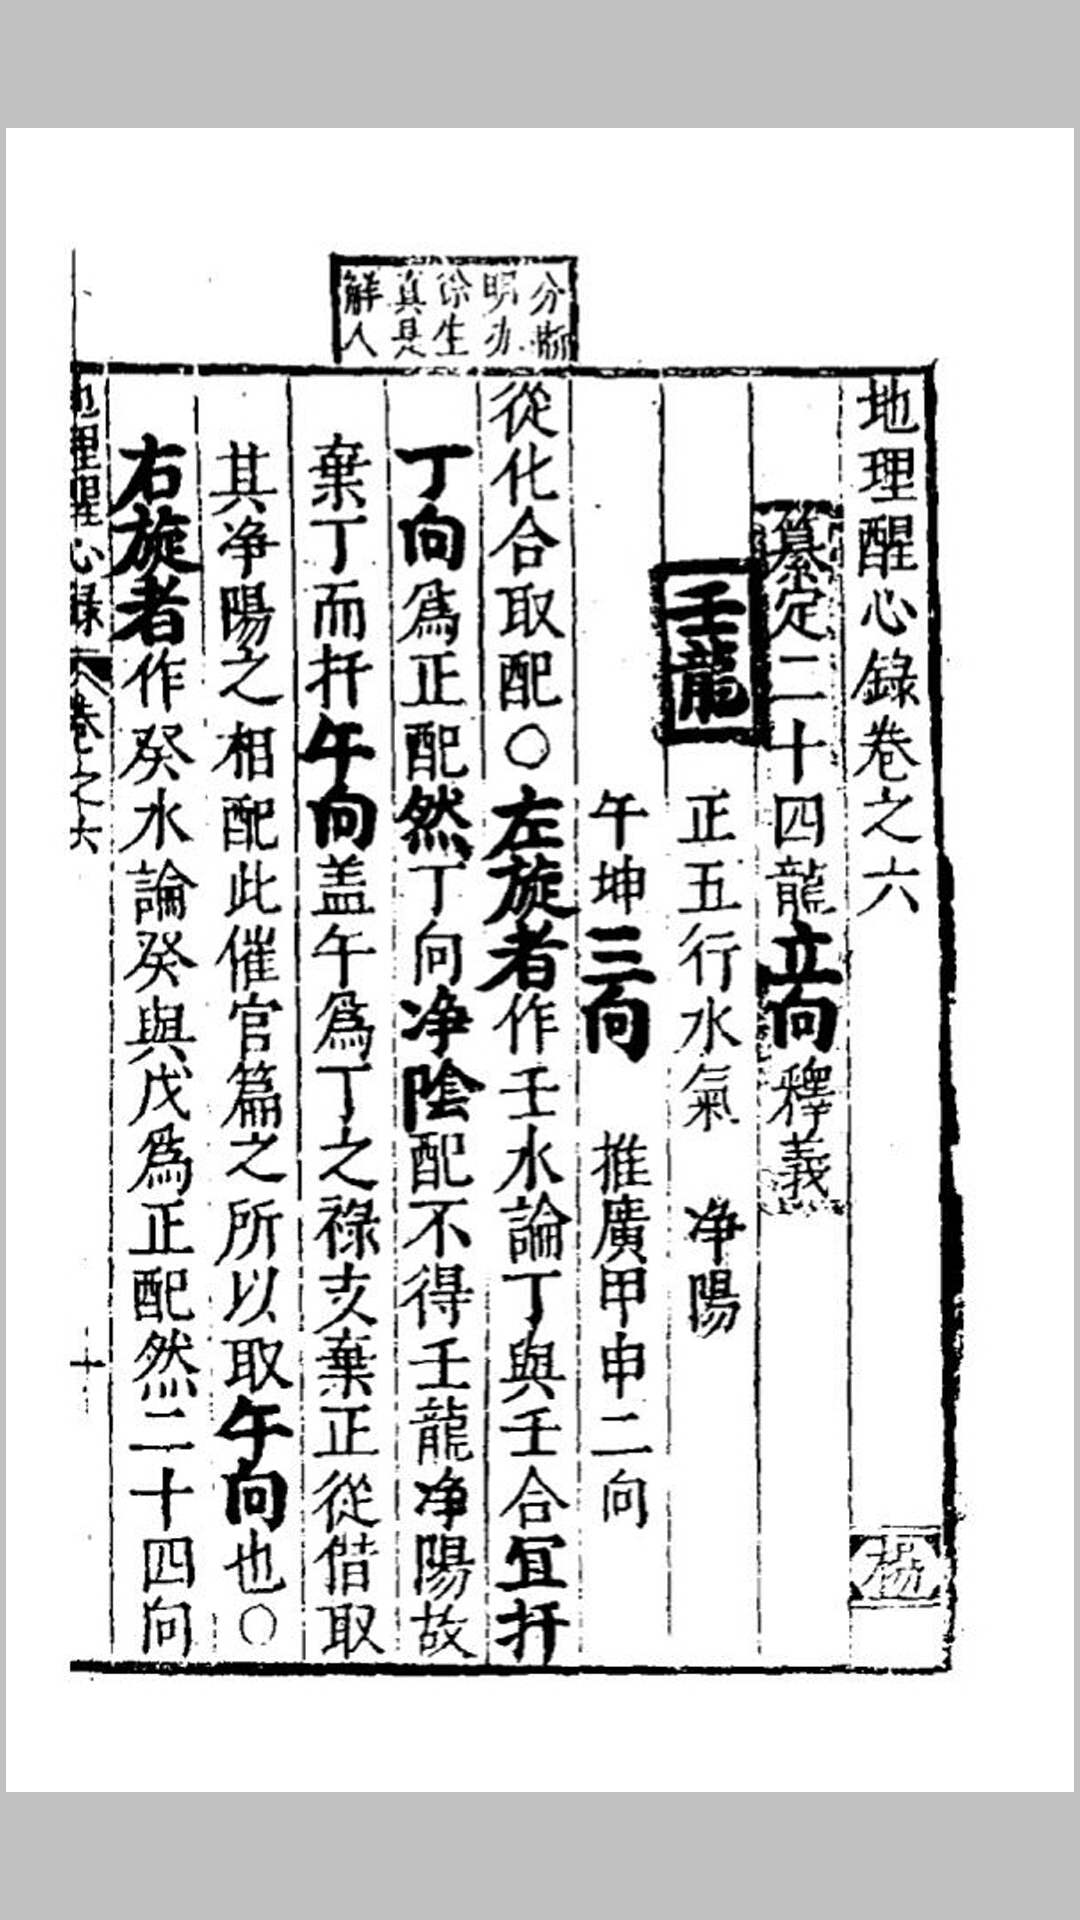 地理醒心錄卷之六
纂定二十四龍立向釋義
壬龍 正五行水氣 净陽
午坤三向 推廣甲申二向
從化合取配○左旋者作壬水論丁與壬合宜扦
丁向爲正配然丁向净陰配不得壬龍净陽故
棄丁而扦午向盖午爲丁之祿支棄正從借取
其净陽之相配此催官篇之所以取午向也○
右旋者作癸水論癸與戊爲正配然二十四向
分晰
明办
徐生
真是
解人
地理醒心錄
卷之六
十
楊